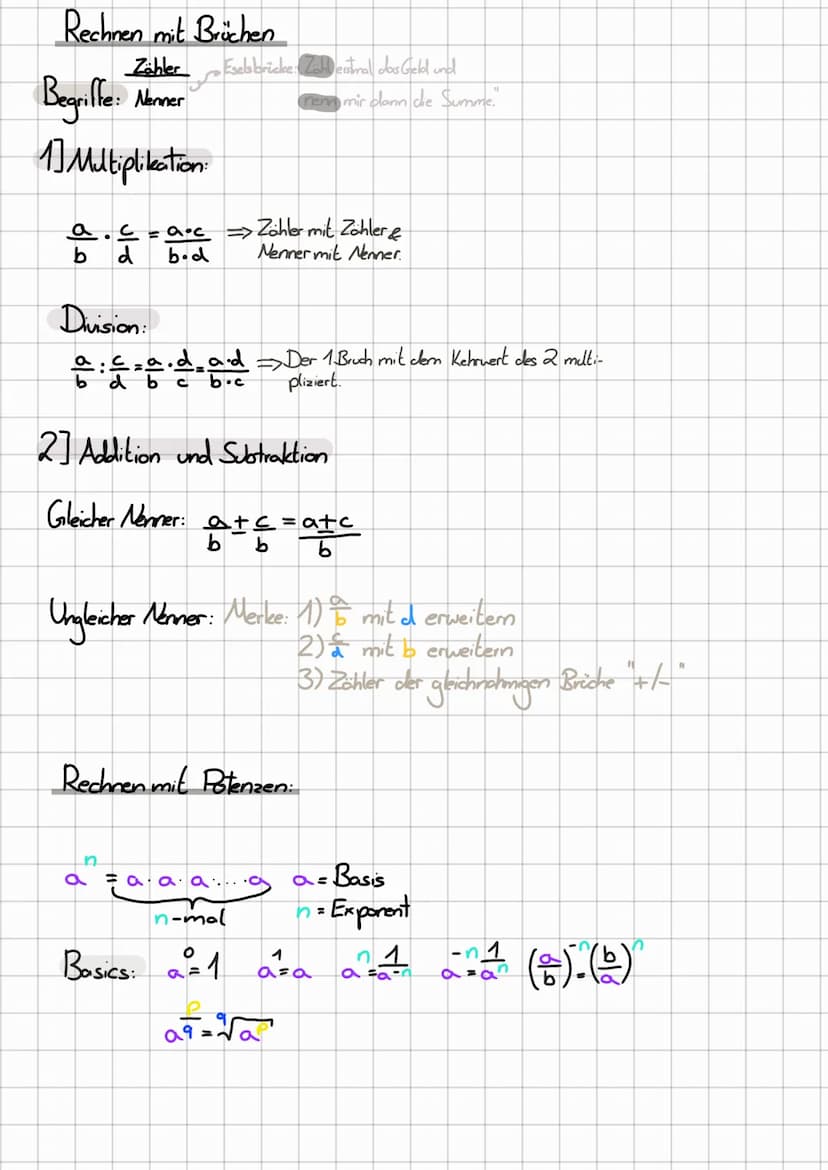 Rechnen mit Brüchen
Begriffe: Zähler/Nenner Eselsbrücke: Zahl erstmal das Geld und
nenn mir dann die Summe."
1] Multiplikation:
a/b · c/d = a·c/b·d ⇒ Zähler mit Zähler &
Nenner mit Nenner.
Division:
a/b : c/d = a/b · d/c = a·d/b·c ⇒ Der 1.Bruch mit dem Kehrwert des 2 multi-
pliziert.
2] Addition und Subtraktion
Gleicher Nenner: a/b ± c/b = a±c/b
Ungleicher Nenner: Merke: 1) a/b mit d erweitern
2) c/d mit b erweitern
3) Zähler der gleichnahmigen Brüche "+/-"
Rechnen mit Potenzen:
a^n = a·a·a·...·a a = Basis
n-mal n = Exponent
Basics: a^0 = 1 a^1 = a a^n = 1/a^-n a^-n = 1/a^n (a/b)^-n = (b/a)^n
a^p/q = q√a^p